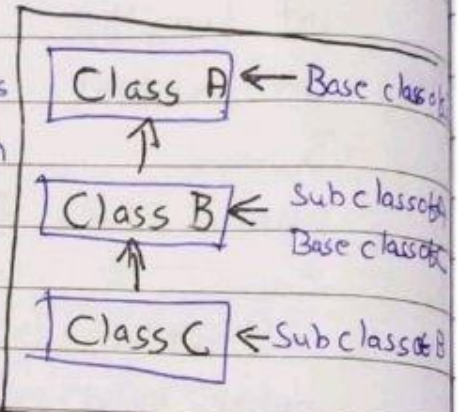 Class A ← Base class of
Class B ← Sub class of A
Base class of
Class C ← Sub class of B